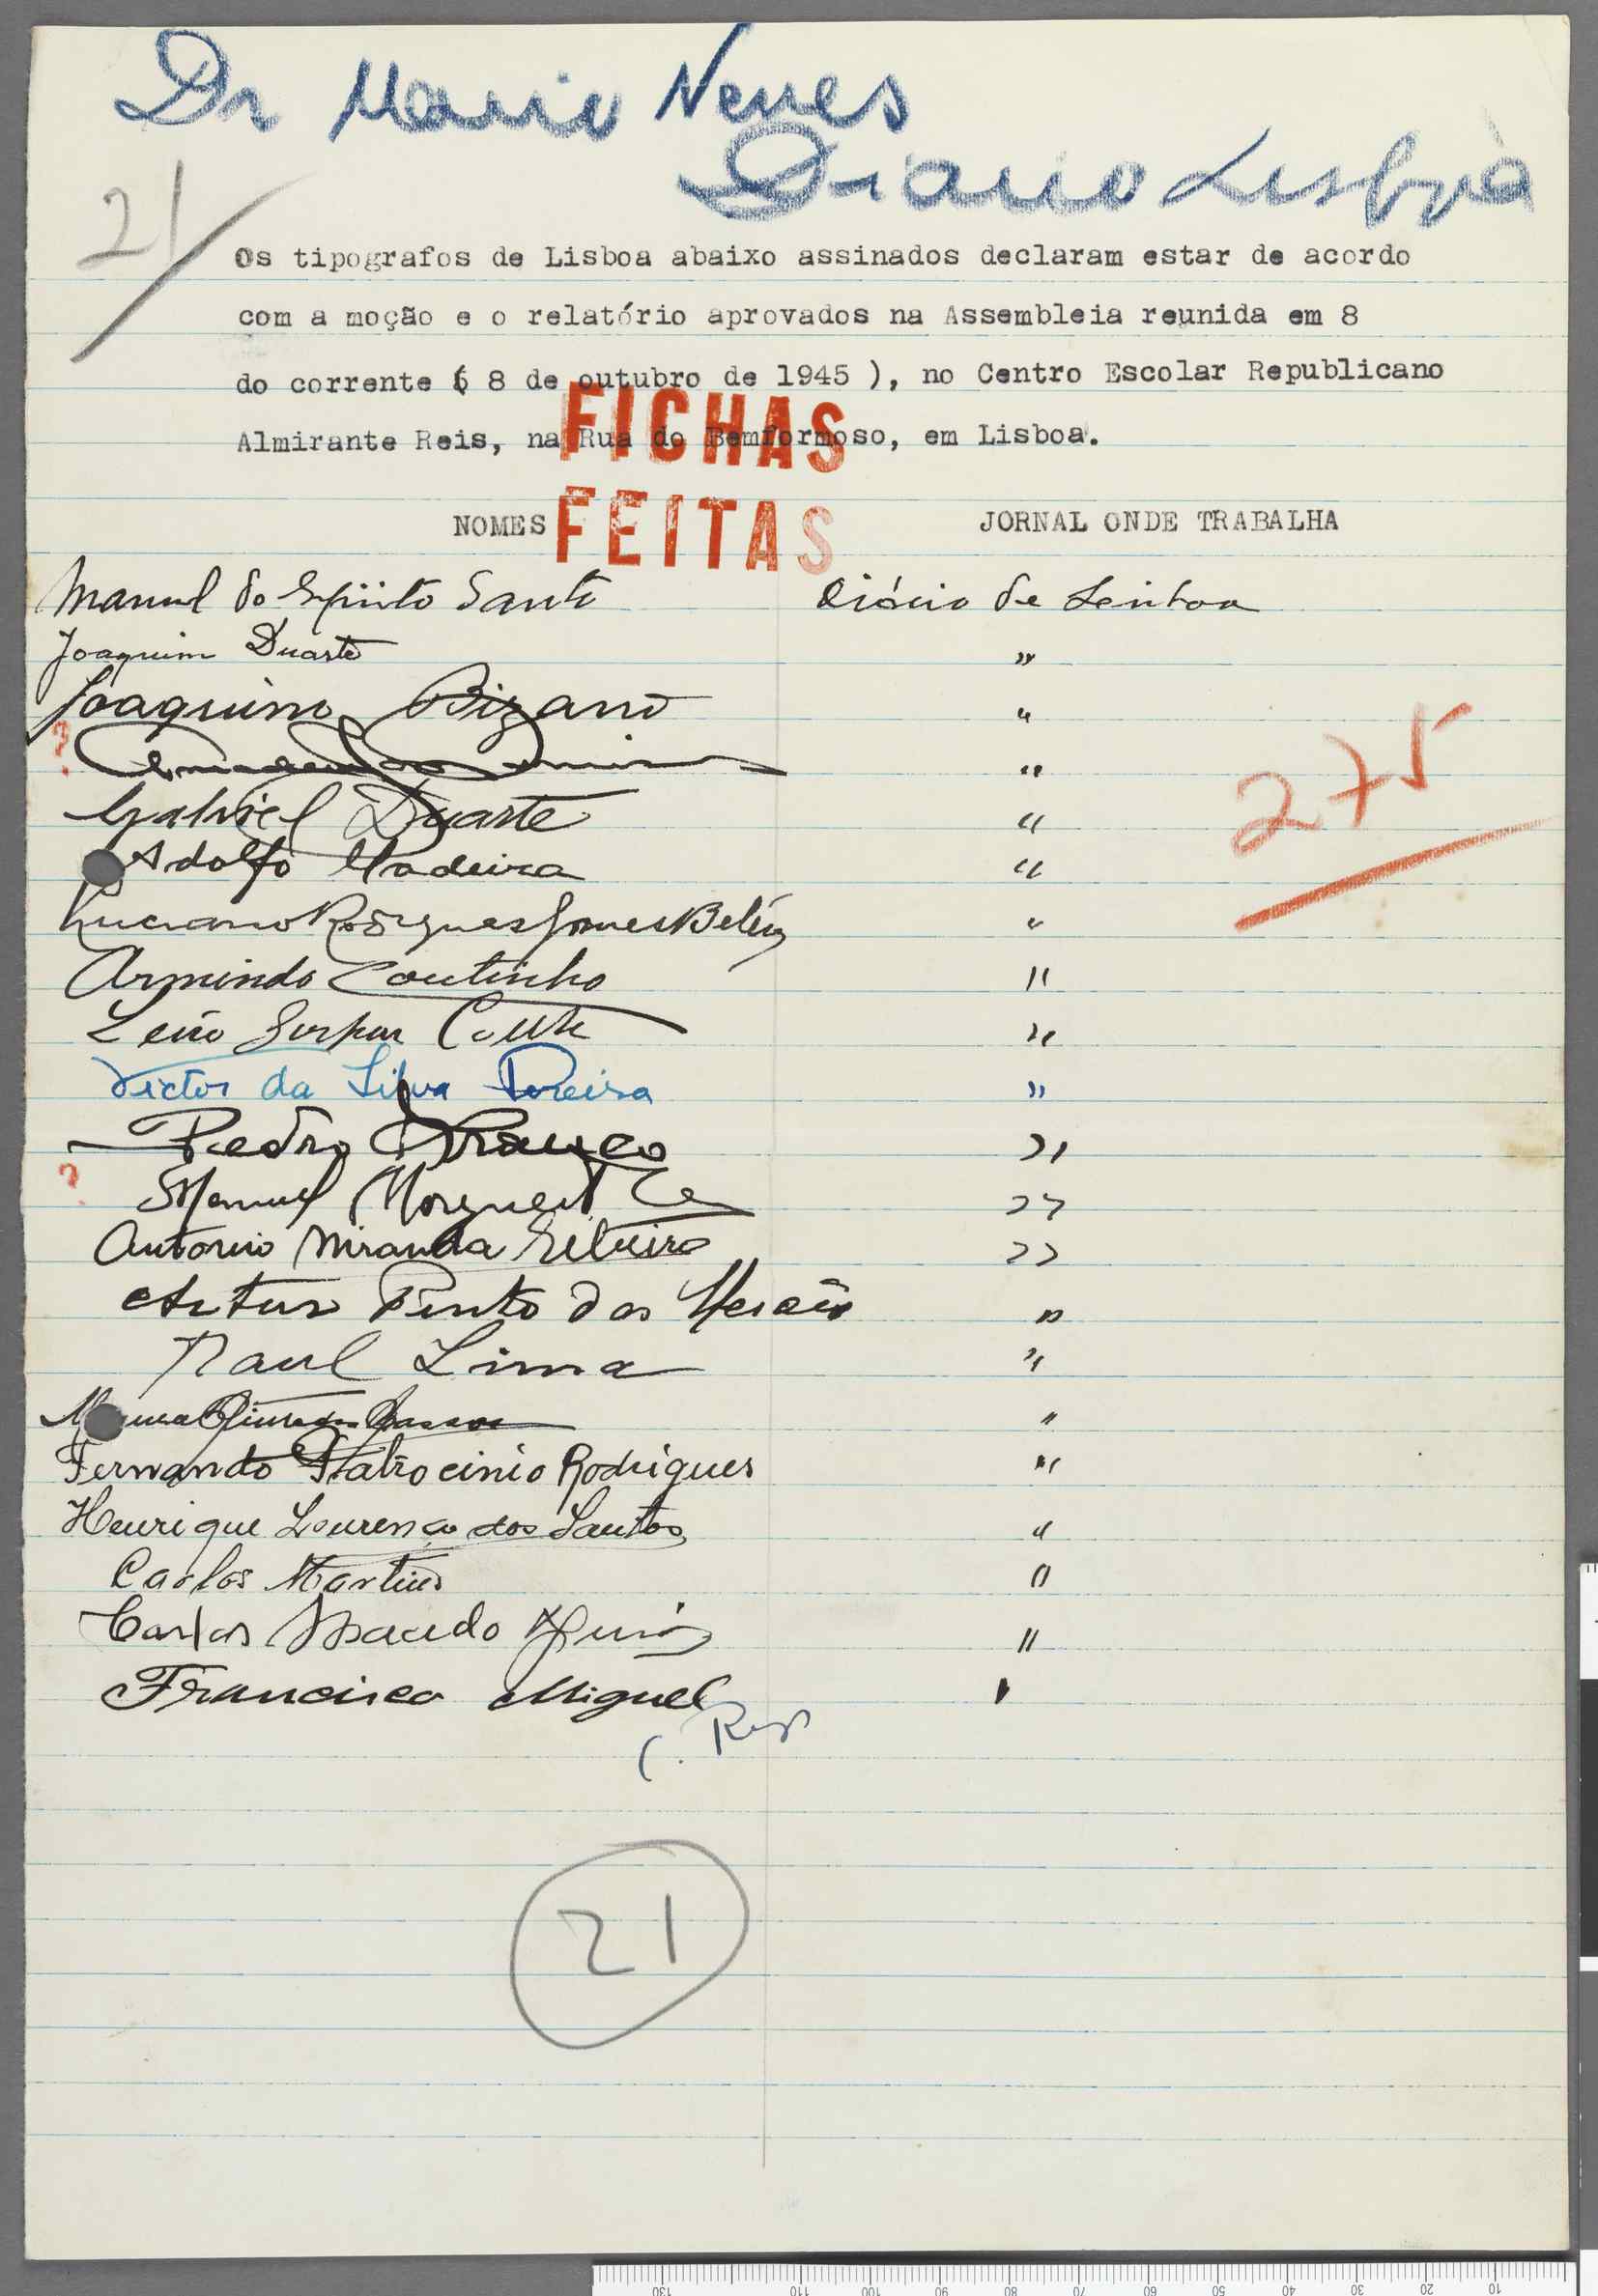 Dr Mario Neves
Diario Lisboa
21
Os tipografos de Lisboa abaixo assinados declaram estar de acordo
com a moção e o relatório aprovados na Assembleia reunida em 8
do corrente ( 8 de outubro de 1945 ), no Centro Escolar Republicano
Almirante Reis, na Rua do Bemformoso, em Lisboa.
FICHAS
FEITAS
NOMES JORNAL ONDE TRABALHA
Manuel do Espirito Santo Diário de Lisboa
Joaquim Duarte "
Joaquim Bizarro "
? "
275
Gabriel Duarte "
Adolfo Madeira "
Luciano Rodrigues Gomes Belém "
Armindo Coutinho "
Gaspar "
Victor da Silva Pereira "
Pedro Franco "
? Manuel "
Antonio Miranda "
Artur Pinto das "
Raul Lima "
"
Fernando Patrocinio Rodrigues "
Henrique Lourenço dos Santos "
Carlos Martins "
Carlos Macedo "
Francisco Miguel "
21